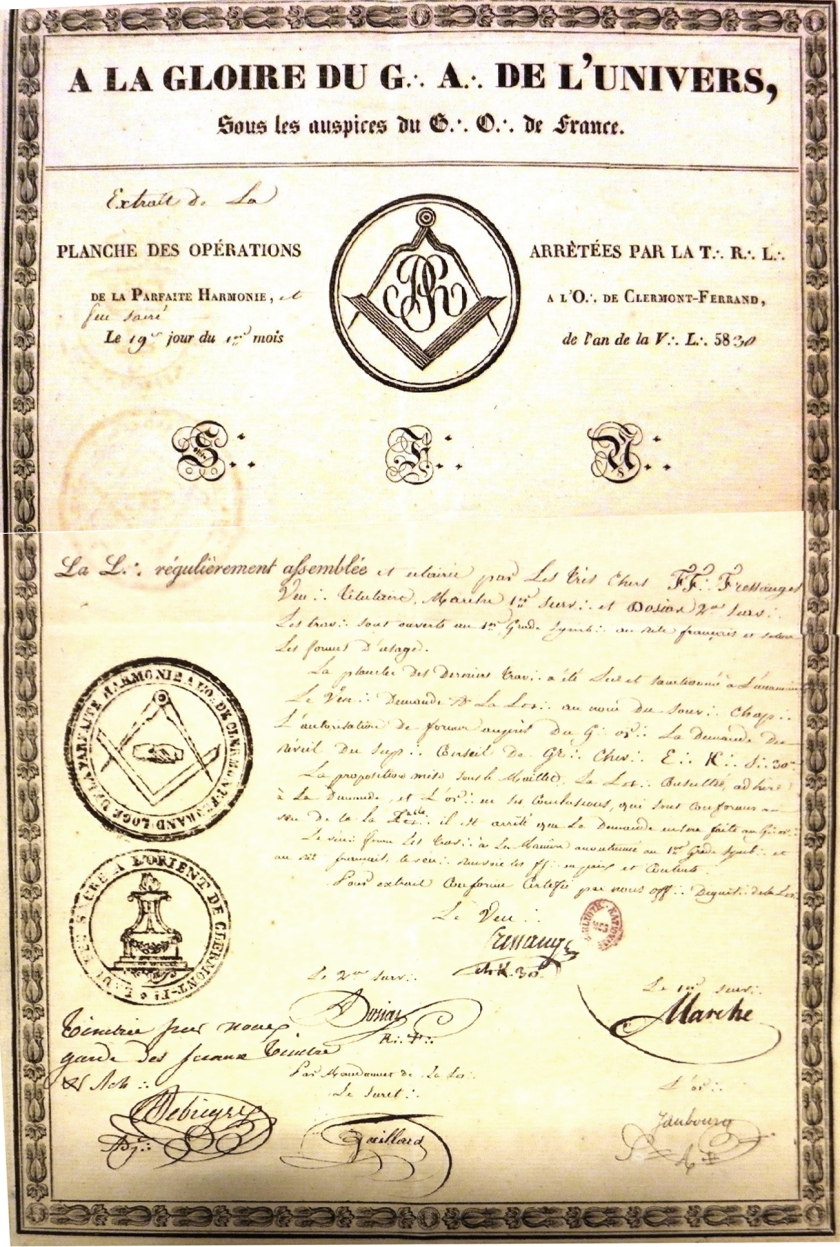 A LA GLOIRE DU G∴ A∴ DE L'UNIVERS,
Sous les auspices du G∴ O∴ de France.
Extrait de La
PLANCHE DES OPÉRATIONS
ARRÊTÉES PAR LA T∴ R∴ L∴
DE LA PARFAITE HARMONIE, et
feu sacré
A L'O∴ DE CLERMONT-FERRAND,
Le 19 jour du mois
de l'an de la V∴ L∴ 5830
S∴ F∴ U∴
La L∴ régulièrement assemblée et éclairée par Les très chers FF∴ Fressanges
Ven∴ titulaire, Marche 1er surv∴ et Dosias 2me surv∴
Les trav∴ sont ouverts au 1er Grade symb∴ au rite français et selon
Les formes d'usage.
La planche des Derniers trav∴ a été Lue et sanctionnée à L'unanimité
Le Vén∴ Demande à La Loge∴ au nom du Souv∴ Chap∴
L'autorisation de former auprès du G∴ or∴ La Demande du
Conseil De Gr∴ Chev∴ E∴ K∴ S∴ 30
La proposition mise sous le Maillet, La Consultée, adhère
à La Demande, et L'or∴ en ses Conclusions, qui sont Conformes au
il est arrêté que La Demande en sera faite au G∴ or∴
Le vén∴ ferme Les trav∴ à La Manière accoutumée au 1er Grade symb∴ et
au rit français, le ven∴ renvoie les ff∴ en paix et Contents
Pour extrait Conforme Certifié par nous off∴ Dignit∴ de la
LOGE DE LA PARFAITE HARMONIE A L'O. DE CLERMONT-FERRAND
FEU SACRÉ A L'ORIENT DE CLERMONT-Fd
Le Ven∴
Fressanges
ch. K. 30
Le 2me surv∴
Dosias
R∴
Le 1er surv∴
Marche
Timbrée par nous
garde des sceaux Timbre
& Arch∴
Par Mandement de La
Le Secret∴
Gaillard
L'or∴
Jaubourg